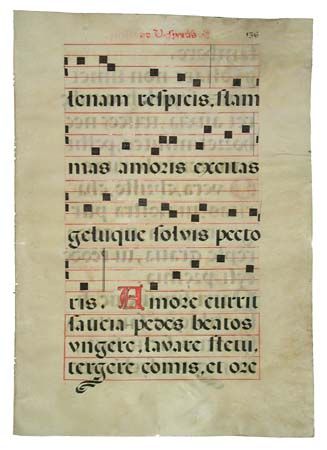 lenam respicis, flam
mas amoris excitas
geluque solvis pecto
ris. Amore currit
saucia pedes beatos
vngere, lavare fletu,
tergere comis, et ore